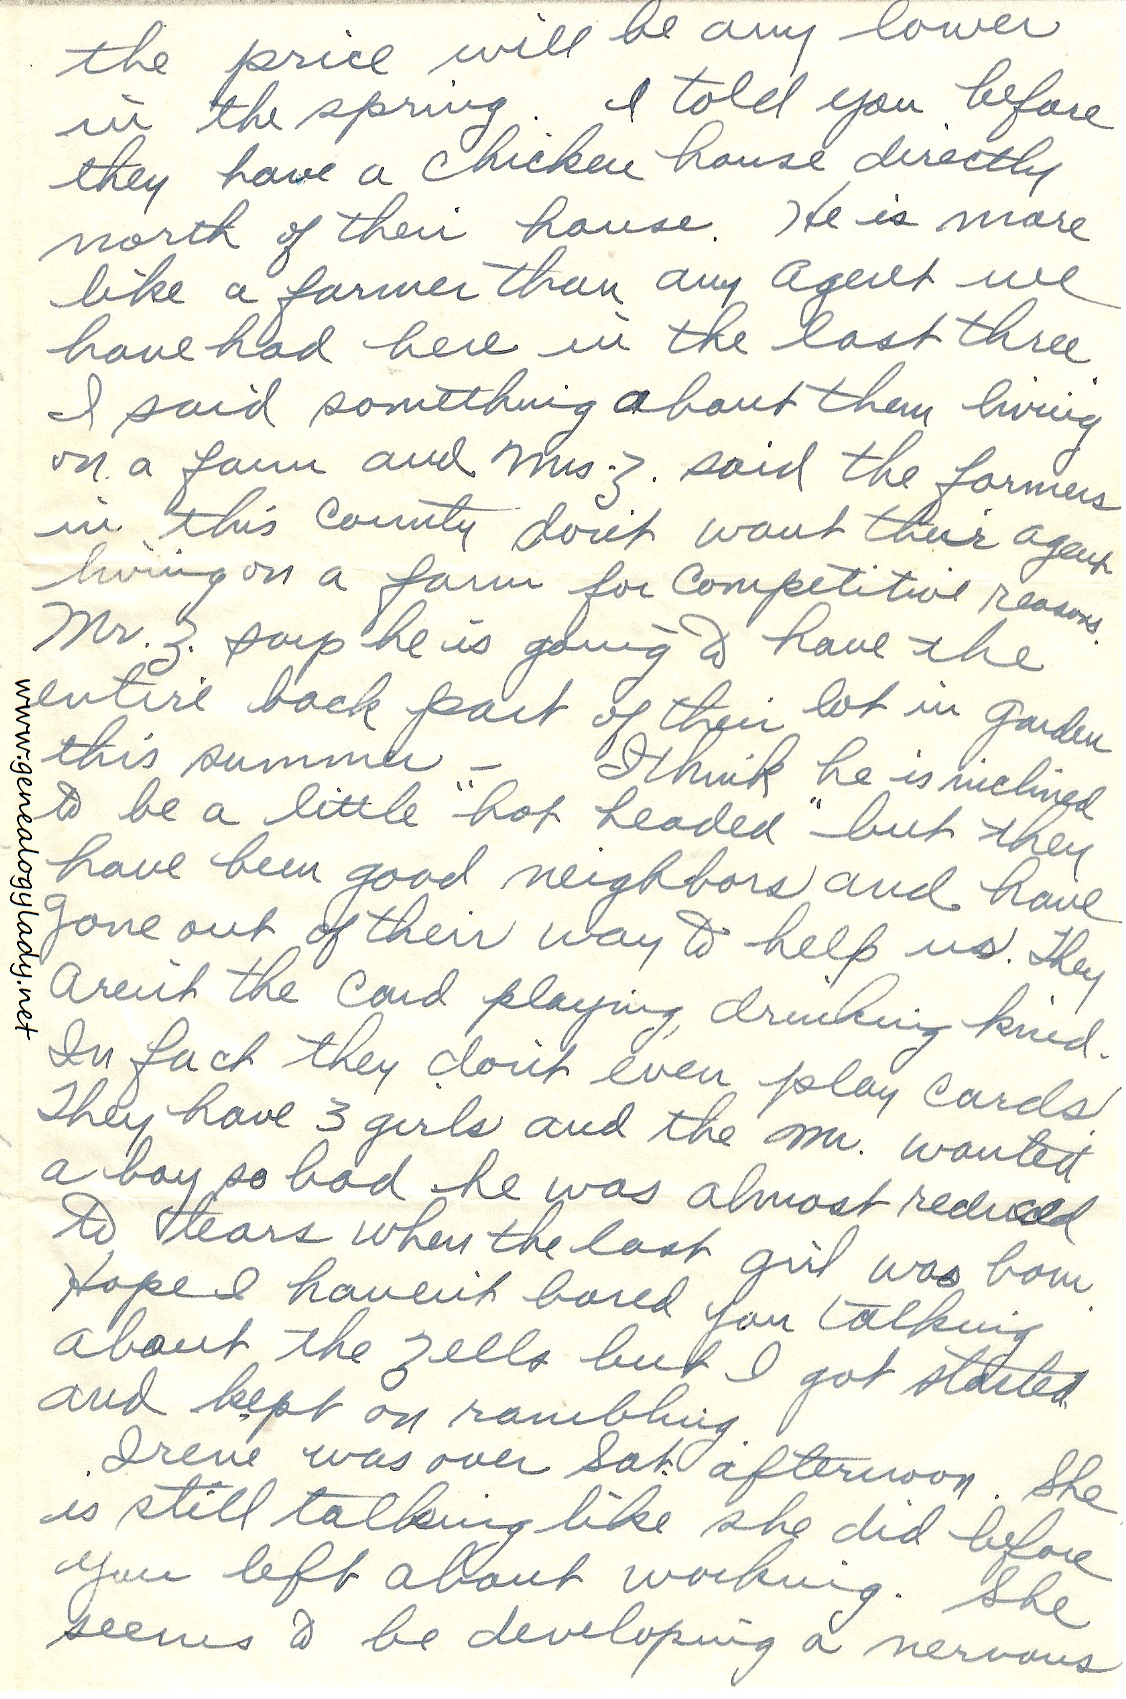 the price will be any lower
in the spring. I told you before
they have a chicken house directly
north of their house. He is more
like a farmer than any agent we
have had here in the last three
I said something about them living
on a farm and Mrs. Z. said the farmers
in this county don't want their agent
living on a farm for competitive reasons.
Mr. Z. says he is going to have the
entire back part of their lot in garden
this summer - I think he is inclined
to be a little "hot headed" but they
have been good neighbors and have
gone out of their way to help us. They
aren't the card playing, drinking kind.
In fact they don't even play cards.
They have 3 girls and the Mr. wanted
a boy so bad he was almost reduced
to tears when the last girl was born.
Hope I haven't bored you talking
about the Zells but I got started
and kept on rambling.
Irene was over Sat. afternoon. She
is still talking like she did before
you left about working. She
seems to be developing a nervous
www.genealogylady.net